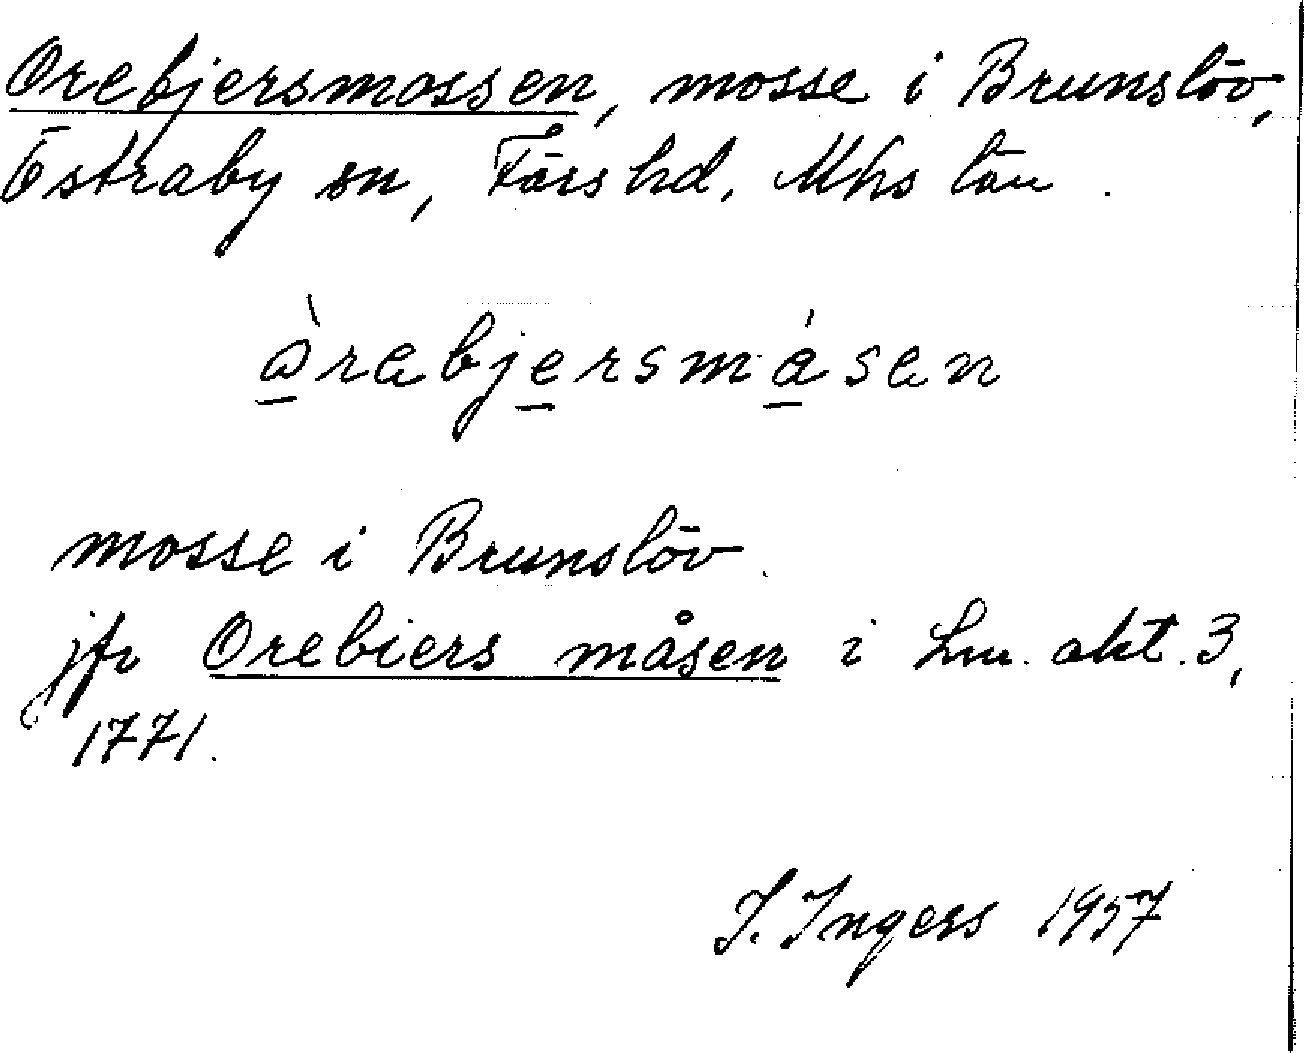 Orebjersmossen, mosse i Brunslöv,
Östraby sn, Färs hd, Mhs län.
àrebjersmåsen
mosse i Brunslöv.
jfr Orebiers måsen i Lm. akt. 3,
1771.
I. Ingers 1957